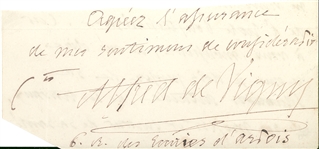 Agréez l'assurance
de mes sentimens de considération
Cte Alfred de Vigny
6. r. des Écuries d'Artois